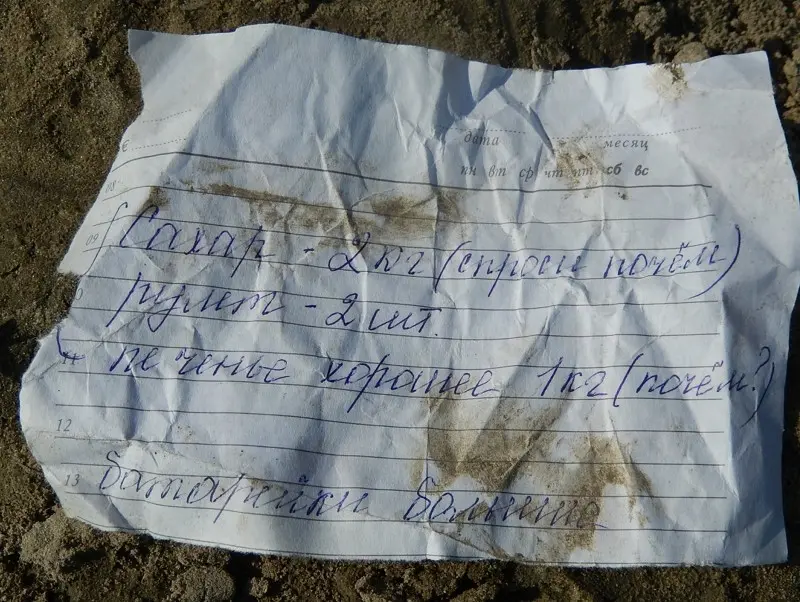 дата месяц
пн вт ср чт пт сб вс
08
09 Сахар - 2 кг (спроси почём)
рулет - 2 шт.
11 печенье хорошее 1 кг (почём?)
12
13 батарейки